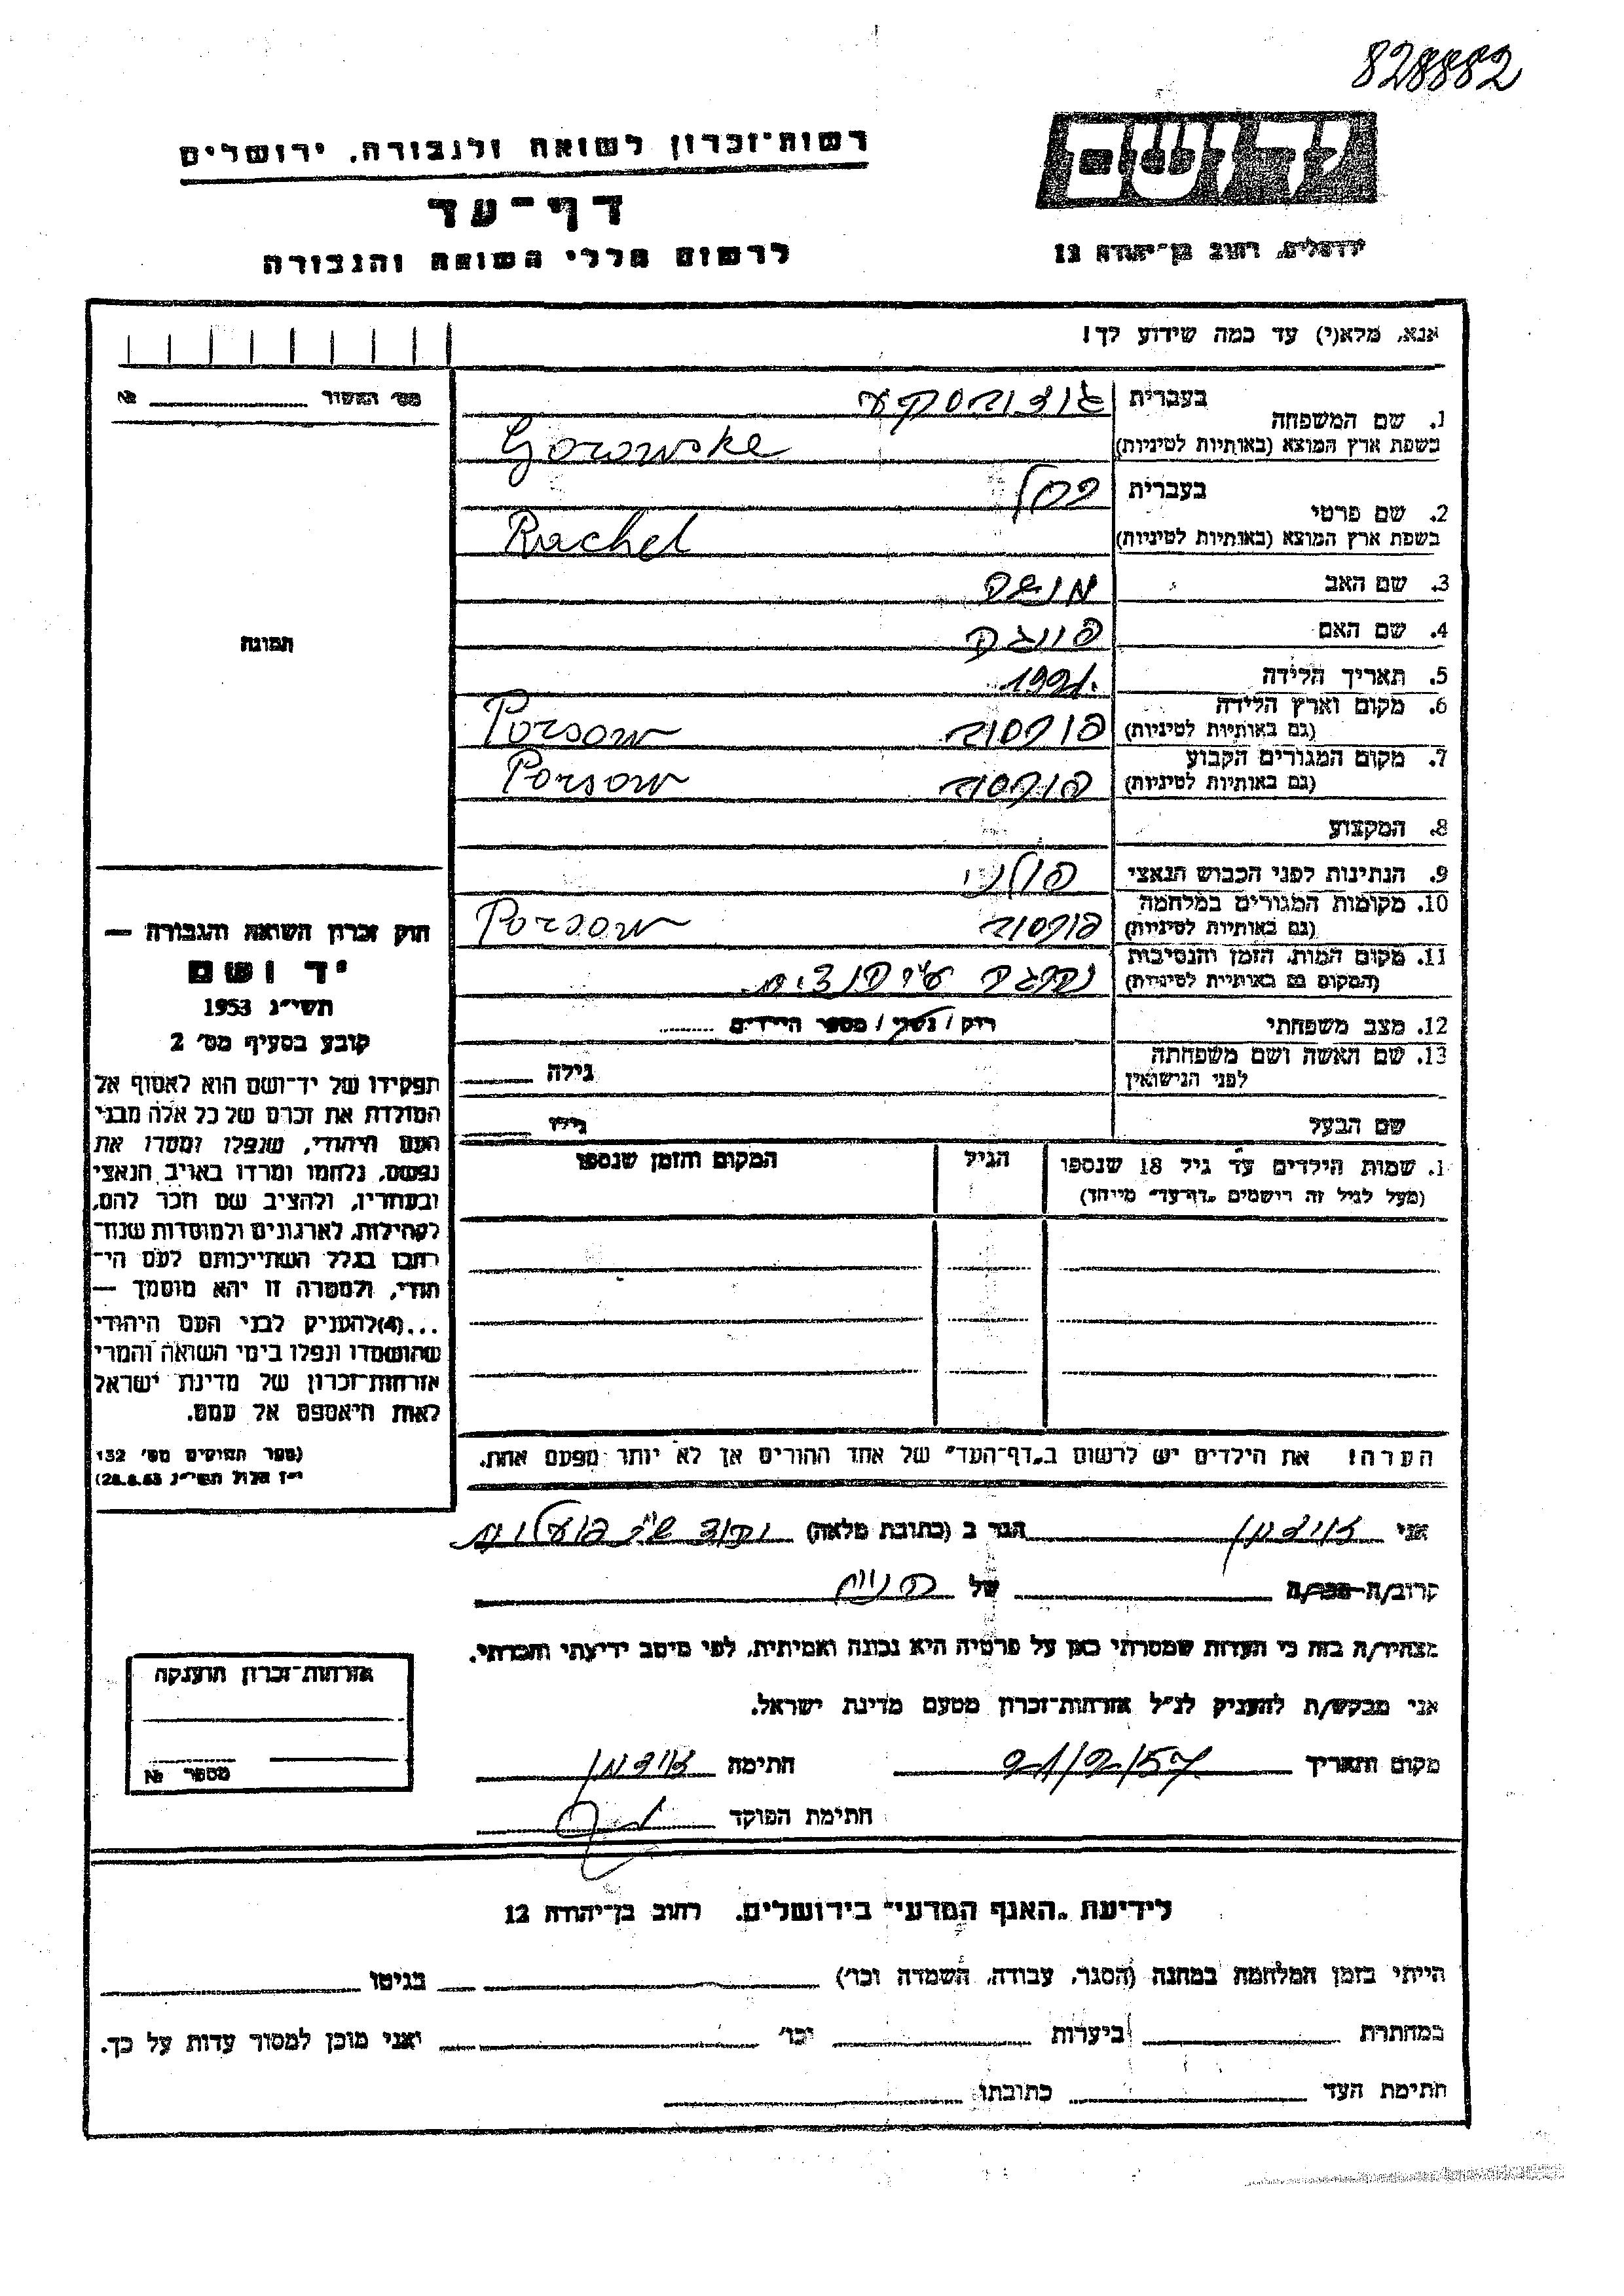 828882
יד ושם
ירושלים, רחוב בן־יהודה 12
רשות־זכרון לשואה ולגבורה, ירושלים
דף־עד
לרשום חללי השואה והגבורה
אנא, מלא(י) עד כמה שידוע לך!
מס׳ האשור № ________
1. שם המשפחה בעברית
בשפת ארץ המוצא (באותיות לטיניות) Gorowske
2. שם פרטי בעברית רחל
בשפת ארץ המוצא (באותיות לטיניות) Rachel
3. שם האב משה
4. שם האם
5. תאריך הלידה
6. מקום וארץ הלידה (גם באותיות לטיניות) פורסוב Porsow
7. מקום המגורים הקבוע (גם באותיות לטיניות) פורסוב Porsow
8. המקצוע
9. הנתינות לפני הכבוש הנאצי פולני
10. מקומות המגורים במלחמה (גם באותיות לטיניות) פורסוב Porsow
11. מקום המות, הזמן והנסיבות (המקום גם באותיות לטיניות) נהרגה ע״י
12. מצב משפחתי רוק / נשוי / מספר הילדים ........
13. שם האשה ושם משפחתה לפני הנישואין גילה ____
שם הבעל גילו ____
1. שמות הילדים עד גיל 18 שנספו (מעל לגיל זה רושמים „דף־עד״ מיוחד) הגיל המקום והזמן שנספו
הערה! את הילדים יש לרשום ב„דף־העד״ של אחד ההורים אך לא יותר מפעם אחת.
תמונה
חוק זכרון השואה והגבורה —
יד ושם
תשי״ג 1953
קובע בסעיף מס׳ 2
תפקידו של יד־ושם הוא לאסוף אל
המולדת את זכרם של כל אלה מבני
העם היהודי, שנפלו ומסרו את
נפשם, נלחמו ומרדו באויב הנאצי
ובעוזריו, ולהציב שם וזכר להם,
לקהילות, לארגונים ולמוסדות שנח־
רבו בגלל השתייכותם לעם הי־
הודי, ולמטרה זו יהא מוסמך —
...(4) להעניק לבני העם היהודי
שהושמדו ונפלו בימי השואה והמרי
אזרחות־זכרון של מדינת ישראל
לאות היאספם אל עמם.
(ספר החוקים מס׳ 132
י״ז אלול תשי״ג 28.8.53)
אני הגר ב (כתובת מלאה)
קרוב/ה מכר/ה של
מצהיר/ה בזה כי העדות שמסרתי כאן על פרטיה היא נכונה ואמיתית, לפי מיטב ידיעתי והכרתי.
אני מבקש/ת להעניק לנ״ל אזרחות־זכרון מטעם מדינת ישראל.
מקום ותאריך חתימה
חתימת הפוקד
אזרחות־זכרון הוענקה
מספר №
לידיעת „האגף המדעי״ בירושלים, רחוב בן־יהודה 12
הייתי בזמן המלחמה במחנה (הסגר, עבודה, השמדה וכו׳) ________ בגיטו ________
במחתרת ________ ביערות ________ וכו׳ ________ ואני מוכן למסור עדות על כך.
חתימת העד ________ כתובתו ________